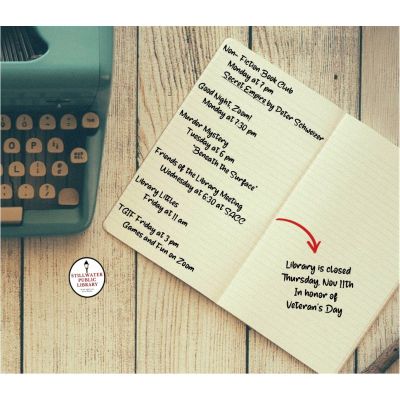 Non- Fiction Book Club
Monday at 7 pm
Secret Empire by Peter Schweizer
Good Night, Zoom!
Monday at 7:30 pm
Murder Mystery
Tuesday at 6 pm
"Beneath the Surface"
Friends of the Library Meeting
Wednesday at 6:30 at SACC
Library Littles
Friday at 11 am
TGIF Friday at 3 pm
Games and Fun on Zoom
Library is closed
Thursday, Nov 11th
In honor of
Veteran's Day
STILLWATER
PUBLIC
LIBRARY